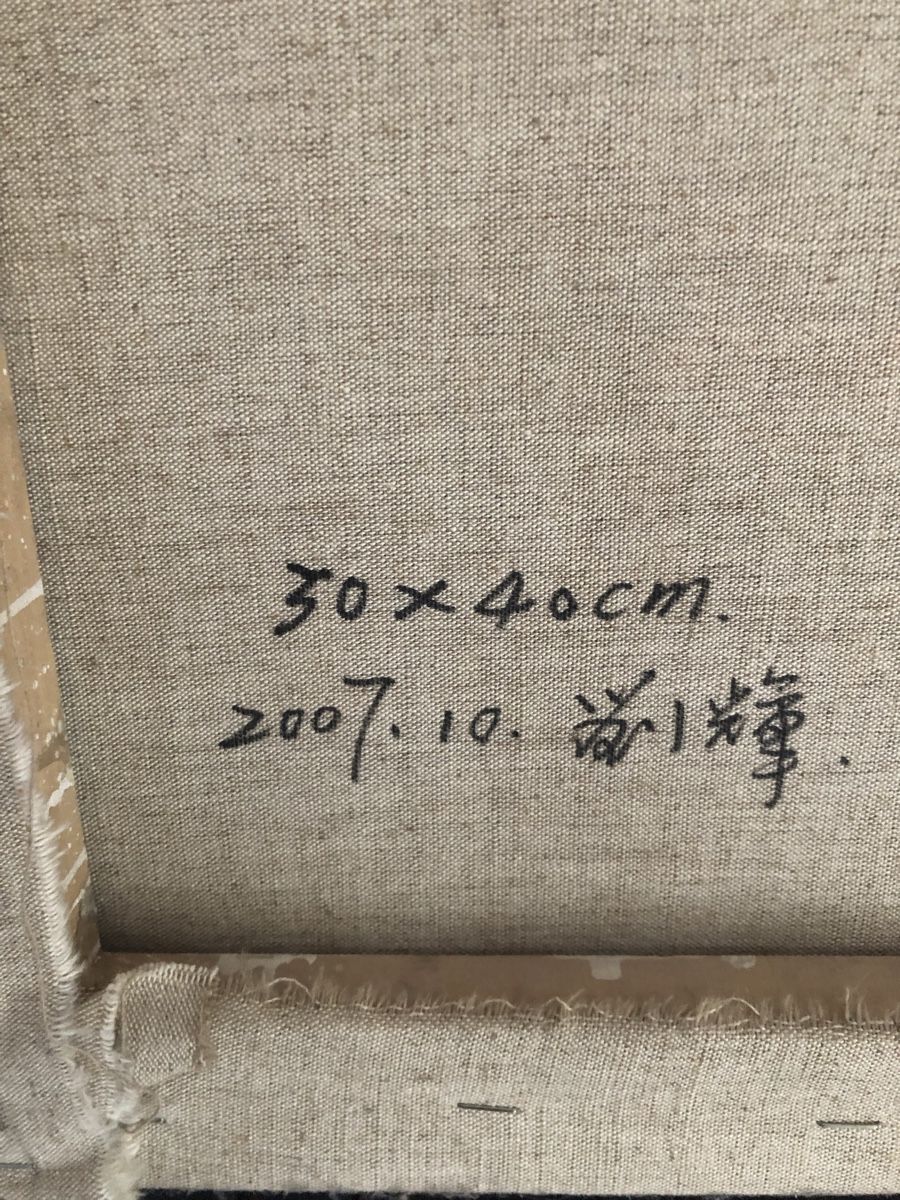 30×40cm.
2007.10. 輝.